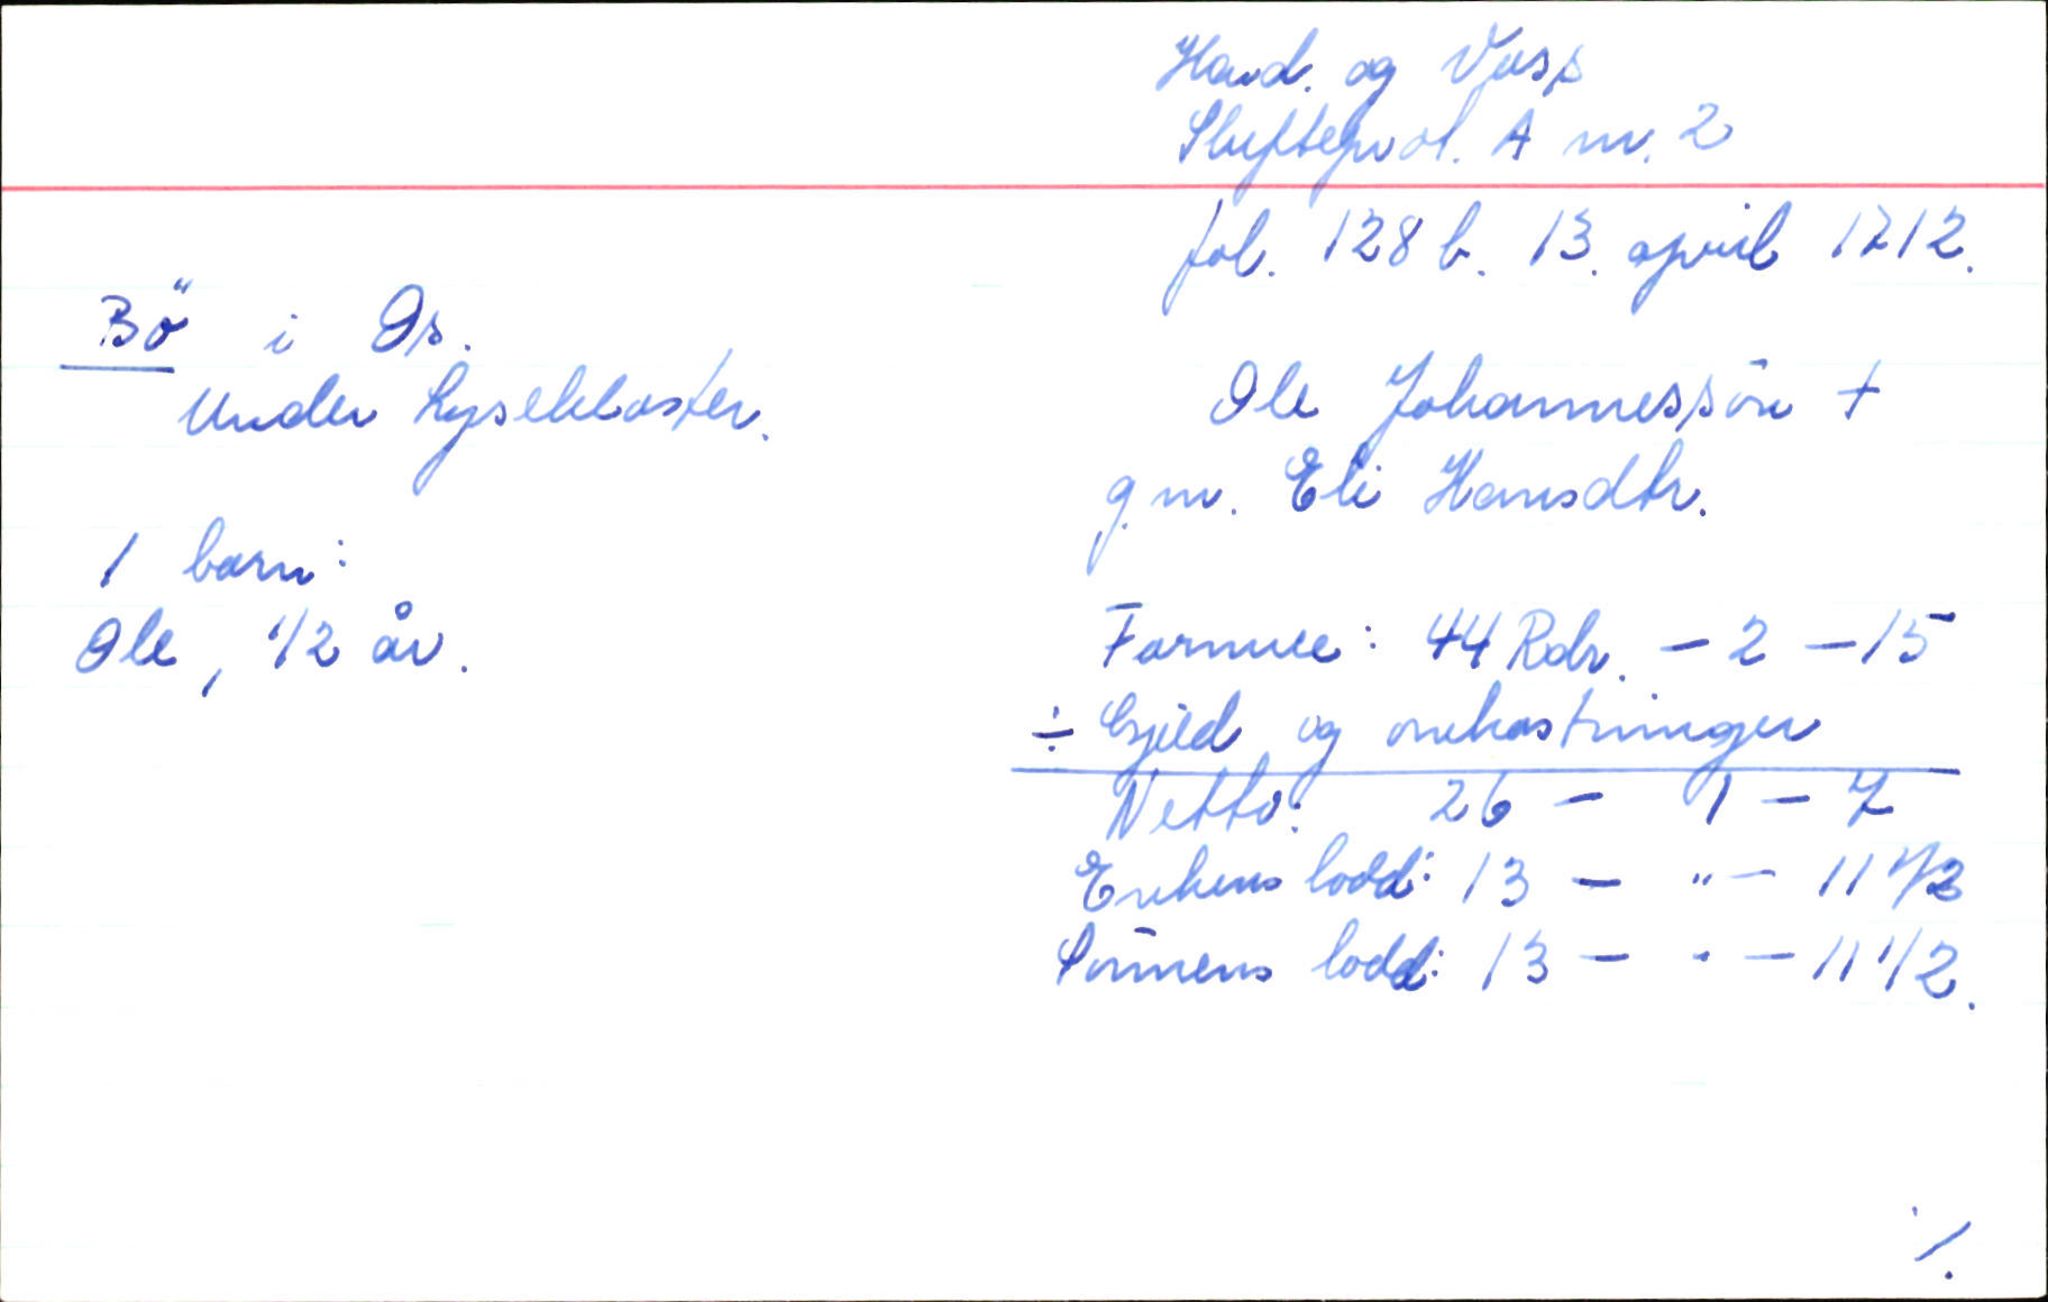 Hard. og Voss
Skifteprot. A nr. 2
fol. 128 b. 13. april 1712.
Bö i Os.
Under Lysekloster.
Ole Johannessön +
g.m. Eli Hansdtr.
1 barn:
Ole, 1/2 år.
Formue: 44 Rdr. - 2 - 15
÷ Gjeld og omkostninger
Netto: 26 - 1 - 7
Enkens lodd: 13 - " - 11 1/2
Sönnens lodd: 13 - " - 11 1/2.
./.